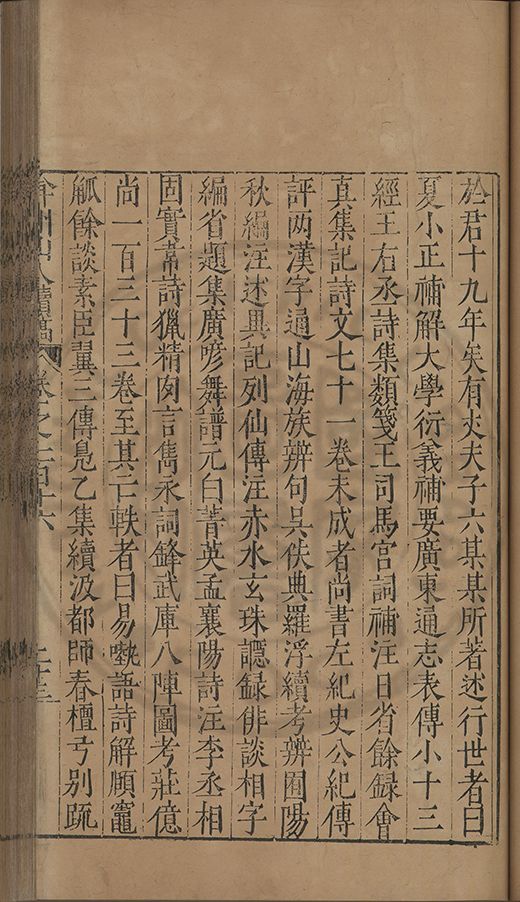 於君十九年矣有丈夫子六某某所著述行世者曰
夏小正補解大學衍義補要廣東通志表傳小十三
經王右丞詩集類箋王司馬宮詞補注日省餘録會
真集記詩文七十一卷未成者尚書左紀史公紀傳
評两漢字通山海族辨句呉佚典羅浮續考辨圄陽
秋編注述異記列仙傳注赤水玄珠讔録俳談相字
編省題集廣喭舞譜元白菁英孟襄陽詩注李丞相
固實蒂詩獵精囪言雋永詞鋒武庫八陣圖考莊億
尚一百三十三卷至其亡軼者曰易𠾱語詩解願竈
觚餘談素臣翼三傳㫺乙集續汲都師春檀弓別䟽
弇州山人續稿 卷之一百十六 二十三